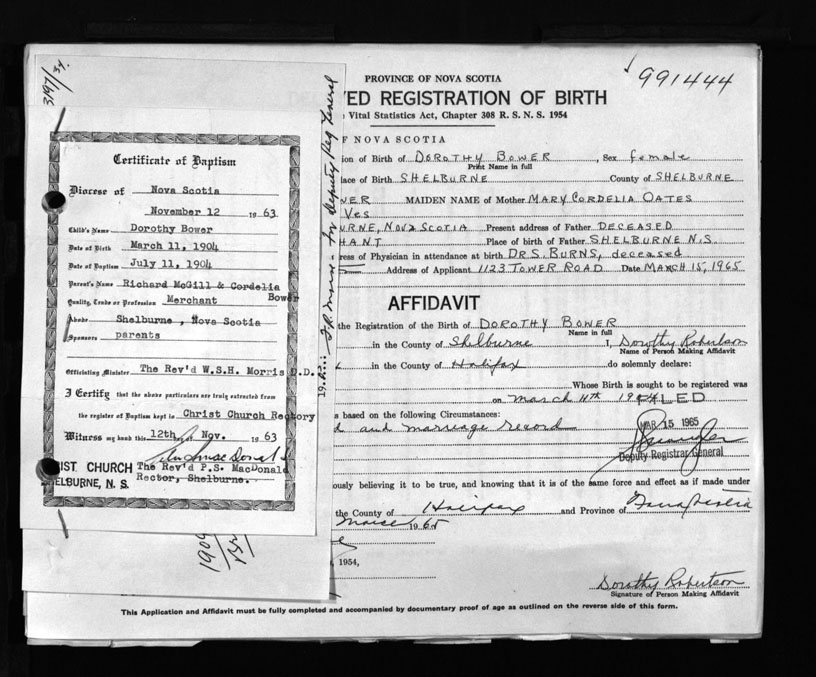 3197/34.
Certificate of Baptism
Diocese of Nova Scotia
November 12 1963
Child's Name Dorothy Bower
Date of Birth March 11, 1904
Date of Baptism July 11, 1904
Parent's Name Richard McGill & Cordelia Bower
Quality, Trade or Profession Merchant
Abode Shelburne, Nova Scotia
Sponsors parents
Officiating Minister The Rev'd W.S.H. Morris D.D.
I Certify that the above particulars are truly extracted from
the register of Baptism kept in Christ Church Rectory
Witness my hand this 12th day of Nov. 1963
IST CHURCH The Rev'd P.S. MacDonald
ELBURNE, N. S. Rector, Shelburne.
for Deputy Reg General
PROVINCE OF NOVA SCOTIA
991444
YED REGISTRATION OF BIRTH
Vital Statistics Act, Chapter 308 R. S. N. S. 1954
F NOVA SCOTIA
ion of Birth of DOROTHY BOWER, Sex female
Print Name in full
lace of Birth SHELBURNE County of SHELBURNE
WER MAIDEN NAME of Mother MARY CORDELIA OATES
Yes
URNE, NOVA SCOTIA Present address of Father DECEASED
HANT Place of birth of Father SHELBURNE N.S.
ress of Physician in attendance at birth DR S. BURNS, deceased
Address of Applicant 1123 TOWER ROAD Date MARCH 15, 1965
AFFIDAVIT
the Registration of the Birth of DOROTHY BOWER
Name in full
in the County of Shelburne I, Dorothy Robertson
Name of Person Making Affidavit
in the County of Halifax do solemnly declare:
Whose Birth is sought to be registered was
on March 11th 1904 FILED
s based on the following Circumstances:
MAR 15 1965
d and marriage record
Deputy Registrar General
ously believing it to be true, and knowing that it is of the same force and effect as if made under
the County of Halifax and Province of Nova Scotia
1965
, 1954,
Dorothy Robertson
Signature of Person Making Affidavit
This Application and Affidavit must be fully completed and accompanied by documentary proof of age as outlined on the reverse side of this form.